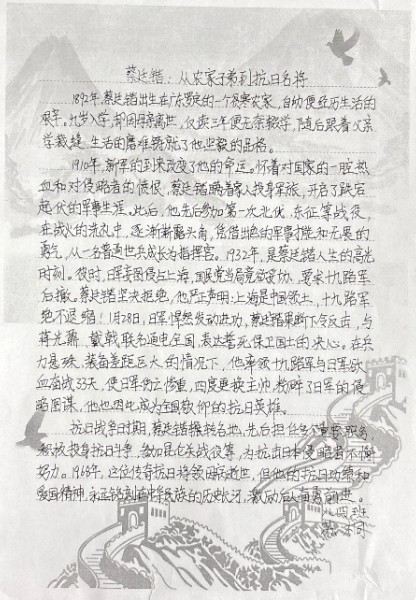 蔡廷锴：从农家子弟到抗日名将
1892年，蔡廷锴出生在广东罗定的一个贫寒农家，自幼便经历生活的
艰辛。九岁入学，却因母亲离世，仅读三年便无奈辍学，随后跟着父亲
学裁缝，生活的磨难铸就了他坚毅的品格。
1910年，新军的到来改变了他的命运。怀着对国家的一腔热
血和对侵略者的愤恨，蔡廷锴瞒着家人投身军旅，开启了跌宕
起伏的军事生涯。此后，他先后参加第一次北伐、东征等战役，
在战火的洗礼中，逐渐崭露头角，凭借出色的军事才能和无畏的
勇气，从一名普通士兵成长为指挥官。1932年，是蔡廷锴人生的高光
时刻。彼时，日军妄图侵占上海，国民党当局竟欲妥协，要求十九路军
后撤。蔡廷锴坚决拒绝，他严正声明：上海是中国领土，十九路军
绝不退缩！1月28日，日军悍然发动进攻，蔡廷锴果断下令反击，与
蒋光鼐、戴戟联名通电全国，表达誓死保卫国土的决心。在兵
力悬殊、装备差距巨大的情况下，他率领十九路军与日军浴
血奋战33天，使日军伤亡惨重，四度更换主帅，粉碎了日军的侵
略图谋，他也因此成为全国敬仰的抗日英雄。
抗日战争时期，蔡廷锴辗转各地，先后担任多个重要职务，
积极投身抗日斗争，参加昆仑关战役等，为抗击日本侵略者不懈
努力。1968年，这位传奇抗日将领因病逝世，但他的抗日功绩和
爱国精神，永远铭刻在中华民族的历史长河，激励后人奋勇前进。
四班